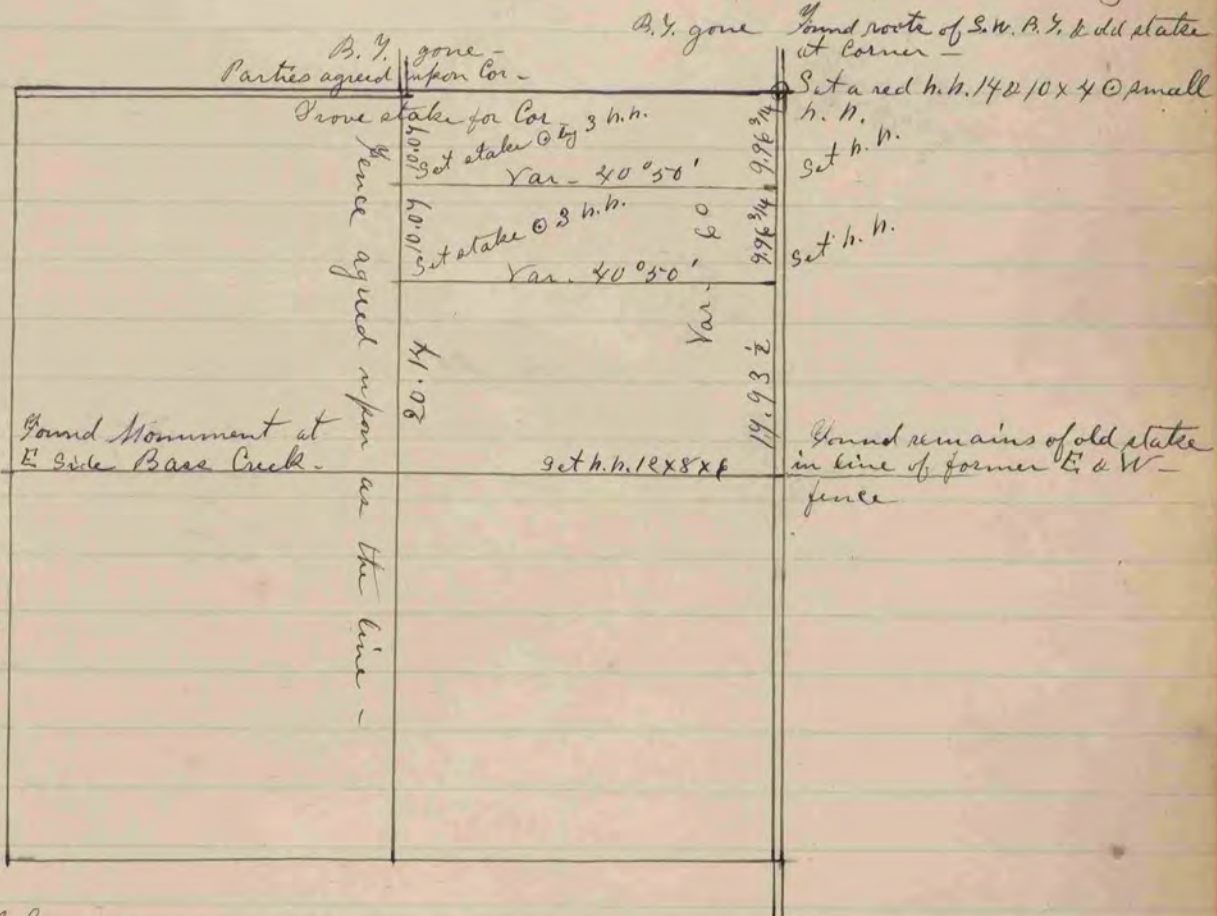 B.T. gone
B.T. gone -
Parties agreed upon Cor -
Found roots of S.W. B.T. & old stake
at Corner -
Set a red h.h. 14 & 10 x 4 ⊙ small
h. h.
Drove stake for Cor -
Set stake ⊙ by 3 h.h.
10.04
Var - 40°50'
9.96 3/4
Set h. h.
Set stake ⊙ 3 h.h.
10.04
Var. 40°50'
9.96 3/4
Set h. h.
Var - 60
Fence agreed upon as the line -
20.14
19.93 1/2
Found Monument at
E Side Bass Creek.
Set h.h. 12x8x6
Found remains of old stake
in line of former E & W -
fence